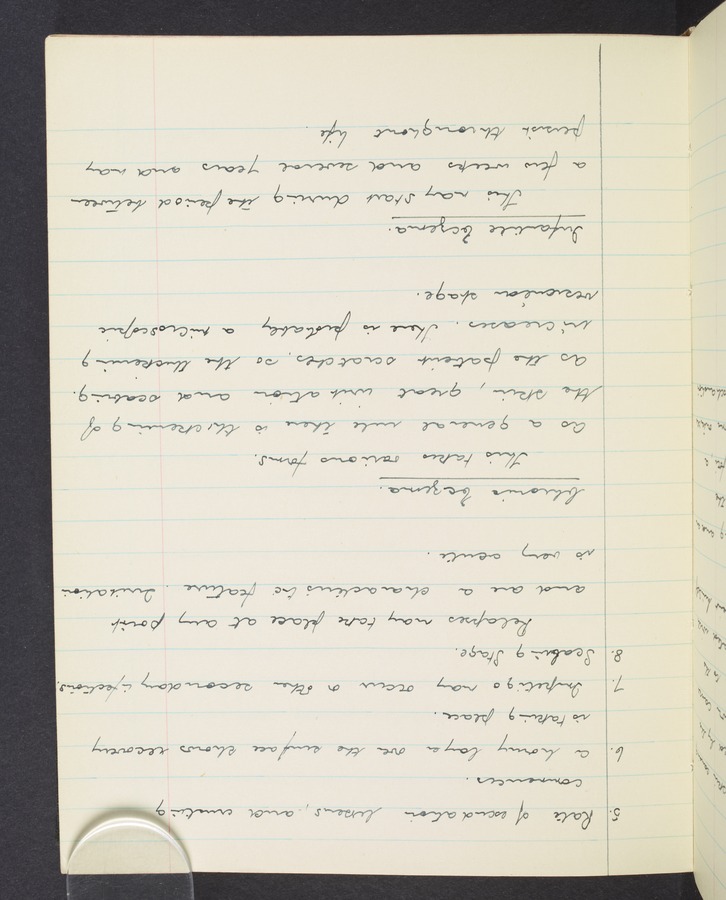 5. Rate of exudation lessens, and crusting
commences.
6. A horny layer over the surface shows recovery
is taking place.
7. Impetigo may occur or other secondary infections.
8. Scaling Stage.
Relapses may take place at any point
and are a characteristic feature. Irritation
is very acute.
Chronic Eczema.
This takes various forms.
As a general rule there is thickening of
the skin, great irritation and scaling.
As the patient scratches, so the thickening
increases. There is probably a microscopic
vesicular stage.
Infantile Eczema.
This may start during the period between
a few weeks and several years and may
persist throughout life.